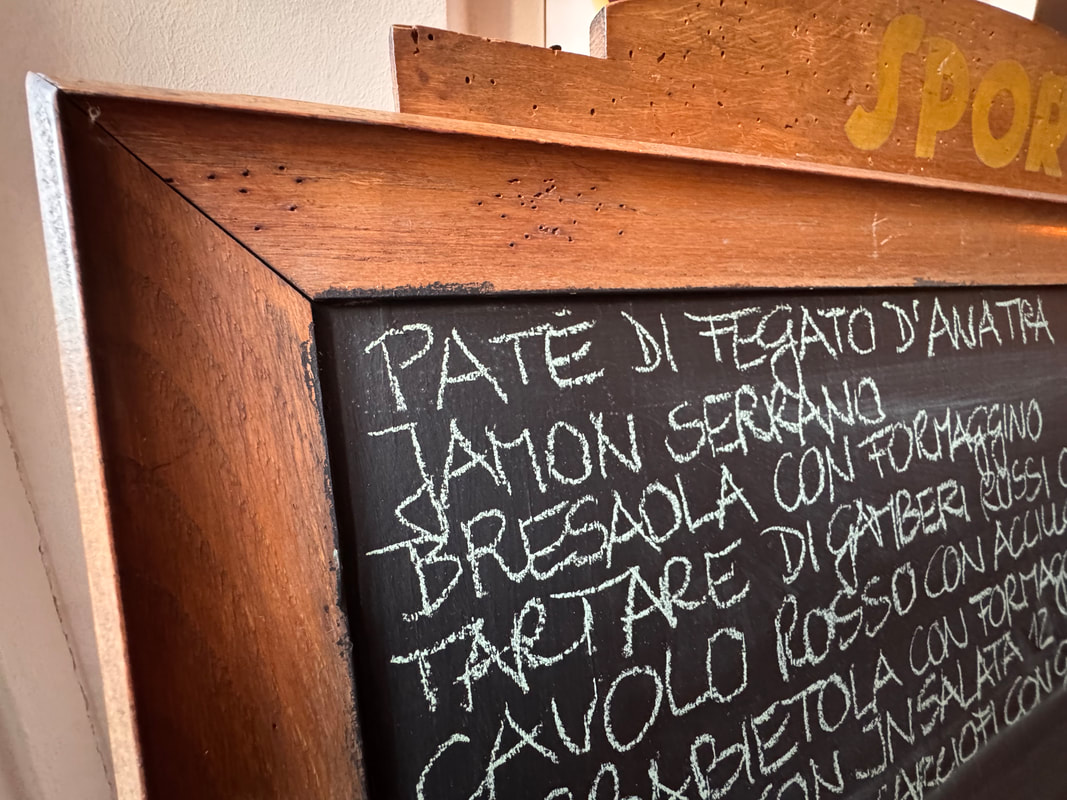 SPOR
PATÈ DI FEGATO D'ANATRA
JAMON SERRANO
BRESAOLA CON FORMAGGINO
TARTARE DI GAMBERI ROSSI C
CAVOLO ROSSO CON ACCIUG
ERBIETOLA CON FORMAGG
CON INSALATA 12
CARCIOFI CON